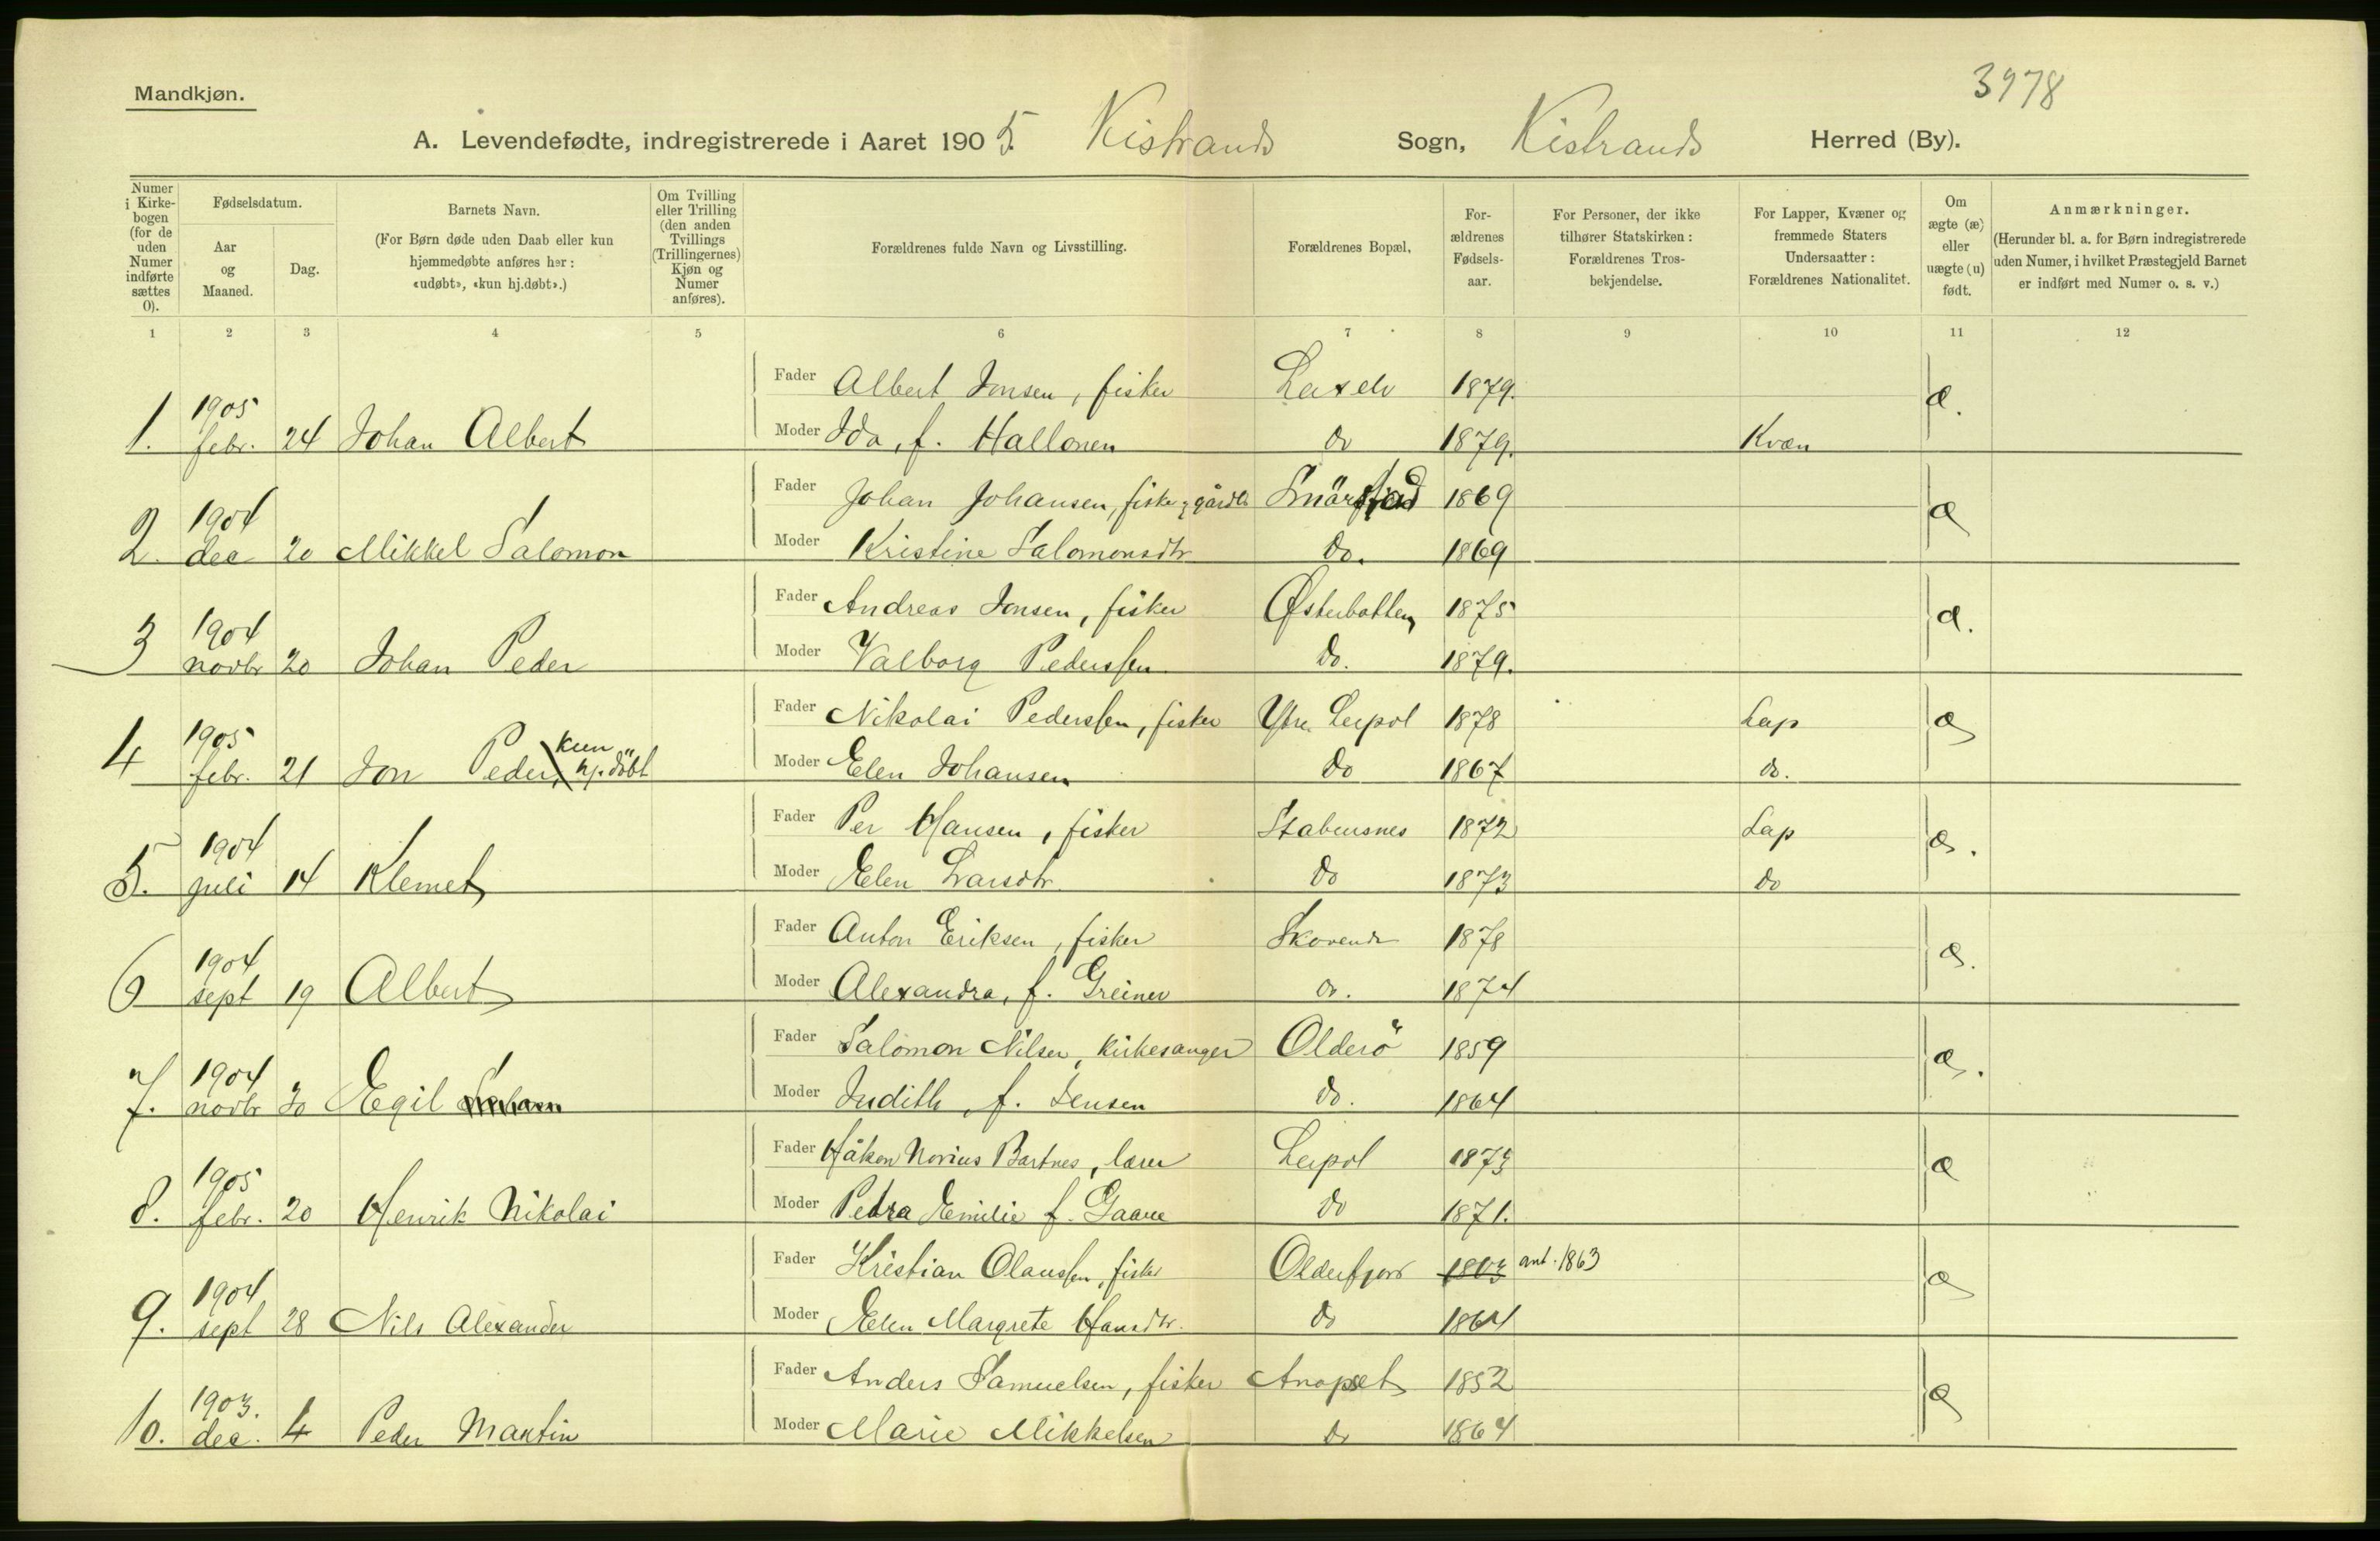 3978
Mandkjøn.
A. Levendefødte, indregistrerede i Aaret 1905. Kistrands Sogn, Kistrands Herred (By).
Numer i Kirkebogen (for de uden Numer indførte sættes 0).
Fødselsdatum.
Aar og Maaned.
Dag.
Barnets Navn.
(For Børn døde uden Daab eller kun hjemmedøbte anføres her: «udøbt», «kun hj.døbt».)
Om Tvilling eller Trilling (den anden Tvillings (Trillingernes) Kjøn og Numer anføres).
Forældrenes fulde Navn og Livsstilling.
Forældrenes Bopæl.
Forældrenes Fødselsaar.
For Personer, der ikke tilhører Statskirken: Forældrenes Trosbekjendelse.
For Lapper, Kvæner og fremmede Staters Undersaatter: Forældrenes Nationalitet.
Om ægte (æ) eller uægte (u) født.
Anmærkninger.
(Herunder bl. a. for Børn indregistrerede uden Numer, i hvilket Præstegjeld Barnet er indført med Numer o. s. v.)
1 2 3 4 5 6 7 8 9 10 11 12
Fader Albert Jonsen, fisker Laxelv 1879. æ.
1. 1905 febr. 24 Johan Albert Moder Ida, f. Hallonen do 1879. Kvæn
Fader Johan Johansen, fisker & gårdb. Smörfjord 1869 æ
2. 1904 dec 20 Mikkel Salomon Moder Kristine Salomonsdtr do. 1869
Fader Andreas Jonsen, fisker Østerbotten 1875 æ.
3 1904 novbr 20 Johan Peder Moder Valborg Pederssen do. 1879.
Fader Nikolai Pederssen, fisker Ytre Leipol 1878 Lap æ
4 1905 febr. 21 Jon Peder, kun hj. döbt Moder Elen Johansen do 1867 do.
Fader Per Hansen, fisker Stabursnes 1872 Lap æ.
5. 1904 juli 14 Klemet Moder Elen Larsdtr. do 1873 do
Fader Anton Eriksen, fisker 1878 æ.
6 1904 sept 19 Albert Moder Alexandra, f. Greiner do. 1874
Fader Salomon Nilsen, kirkesanger Olderö 1859 æ.
7. 1904 novbr 30 Egil Moder Judith, f. Jensen do. 1864
Fader Håkon Norius Bartnes, lærer Leipol 1873 æ
8. 1905 febr. 20 Henrik Nikolai Moder Petra Emilie f. Gaare do 1871.
Fader Kristian Olaussen, fisker Olderfjord 1863 ant. 1863 æ
9. 1904 sept 28 Nils Alexander Moder Elen Margrete Hansdtr. do 1864
Fader Anders Samuelsen, fisker Anopset 1852 æ
10. 1903. dec. 4 Peder Martin Moder Marie Mikkelsen do 1864